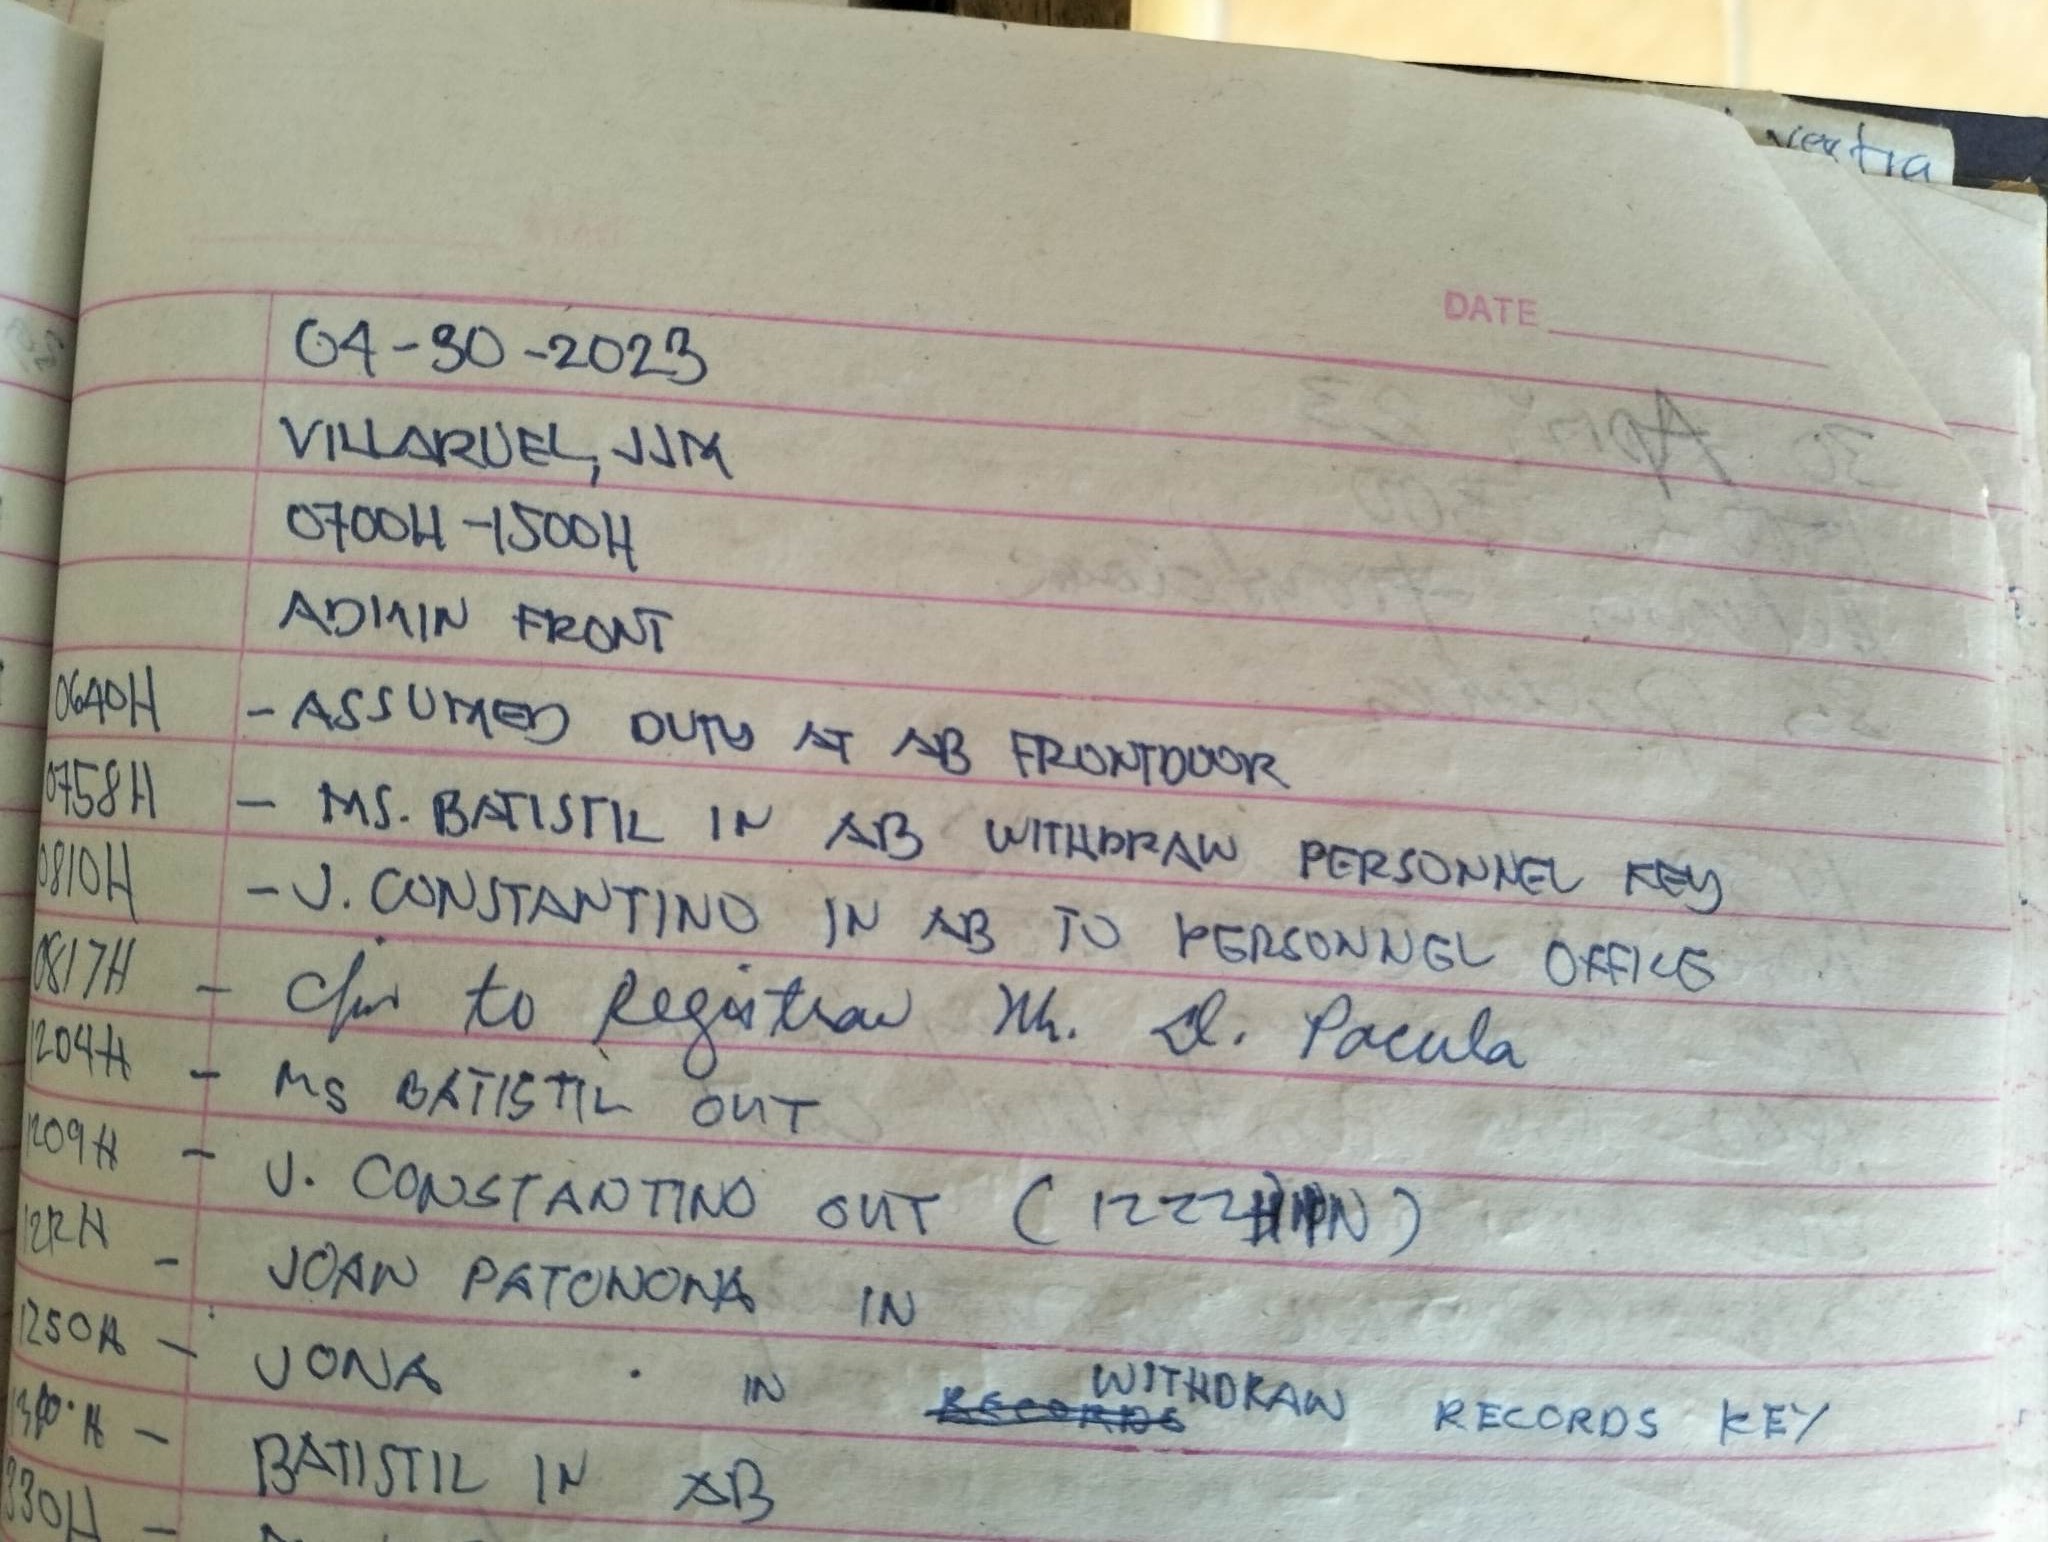 ventra
DATE
04-30-2023
VILLARUEL, JJM
0700H-1500H
ADMIN FRONT
0640H - ASSUMED DUTY AT AB FRONTDOOR
0758H - MS. BATISTIL IN AB WITHDRAW PERSONNEL KEY
0810H - J. CONSTANTINO IN AB TO PERSONNEL OFFICE
0817H - to Registrar D. Pacula
1204H - MS BATISTIL OUT
1209H - J. CONSTANTINO OUT (1222
- JOAN PATONONA IN
1250H - JONA IN WITHDRAW RECORDS KEY
- BATISTIL IN AB
1330H -